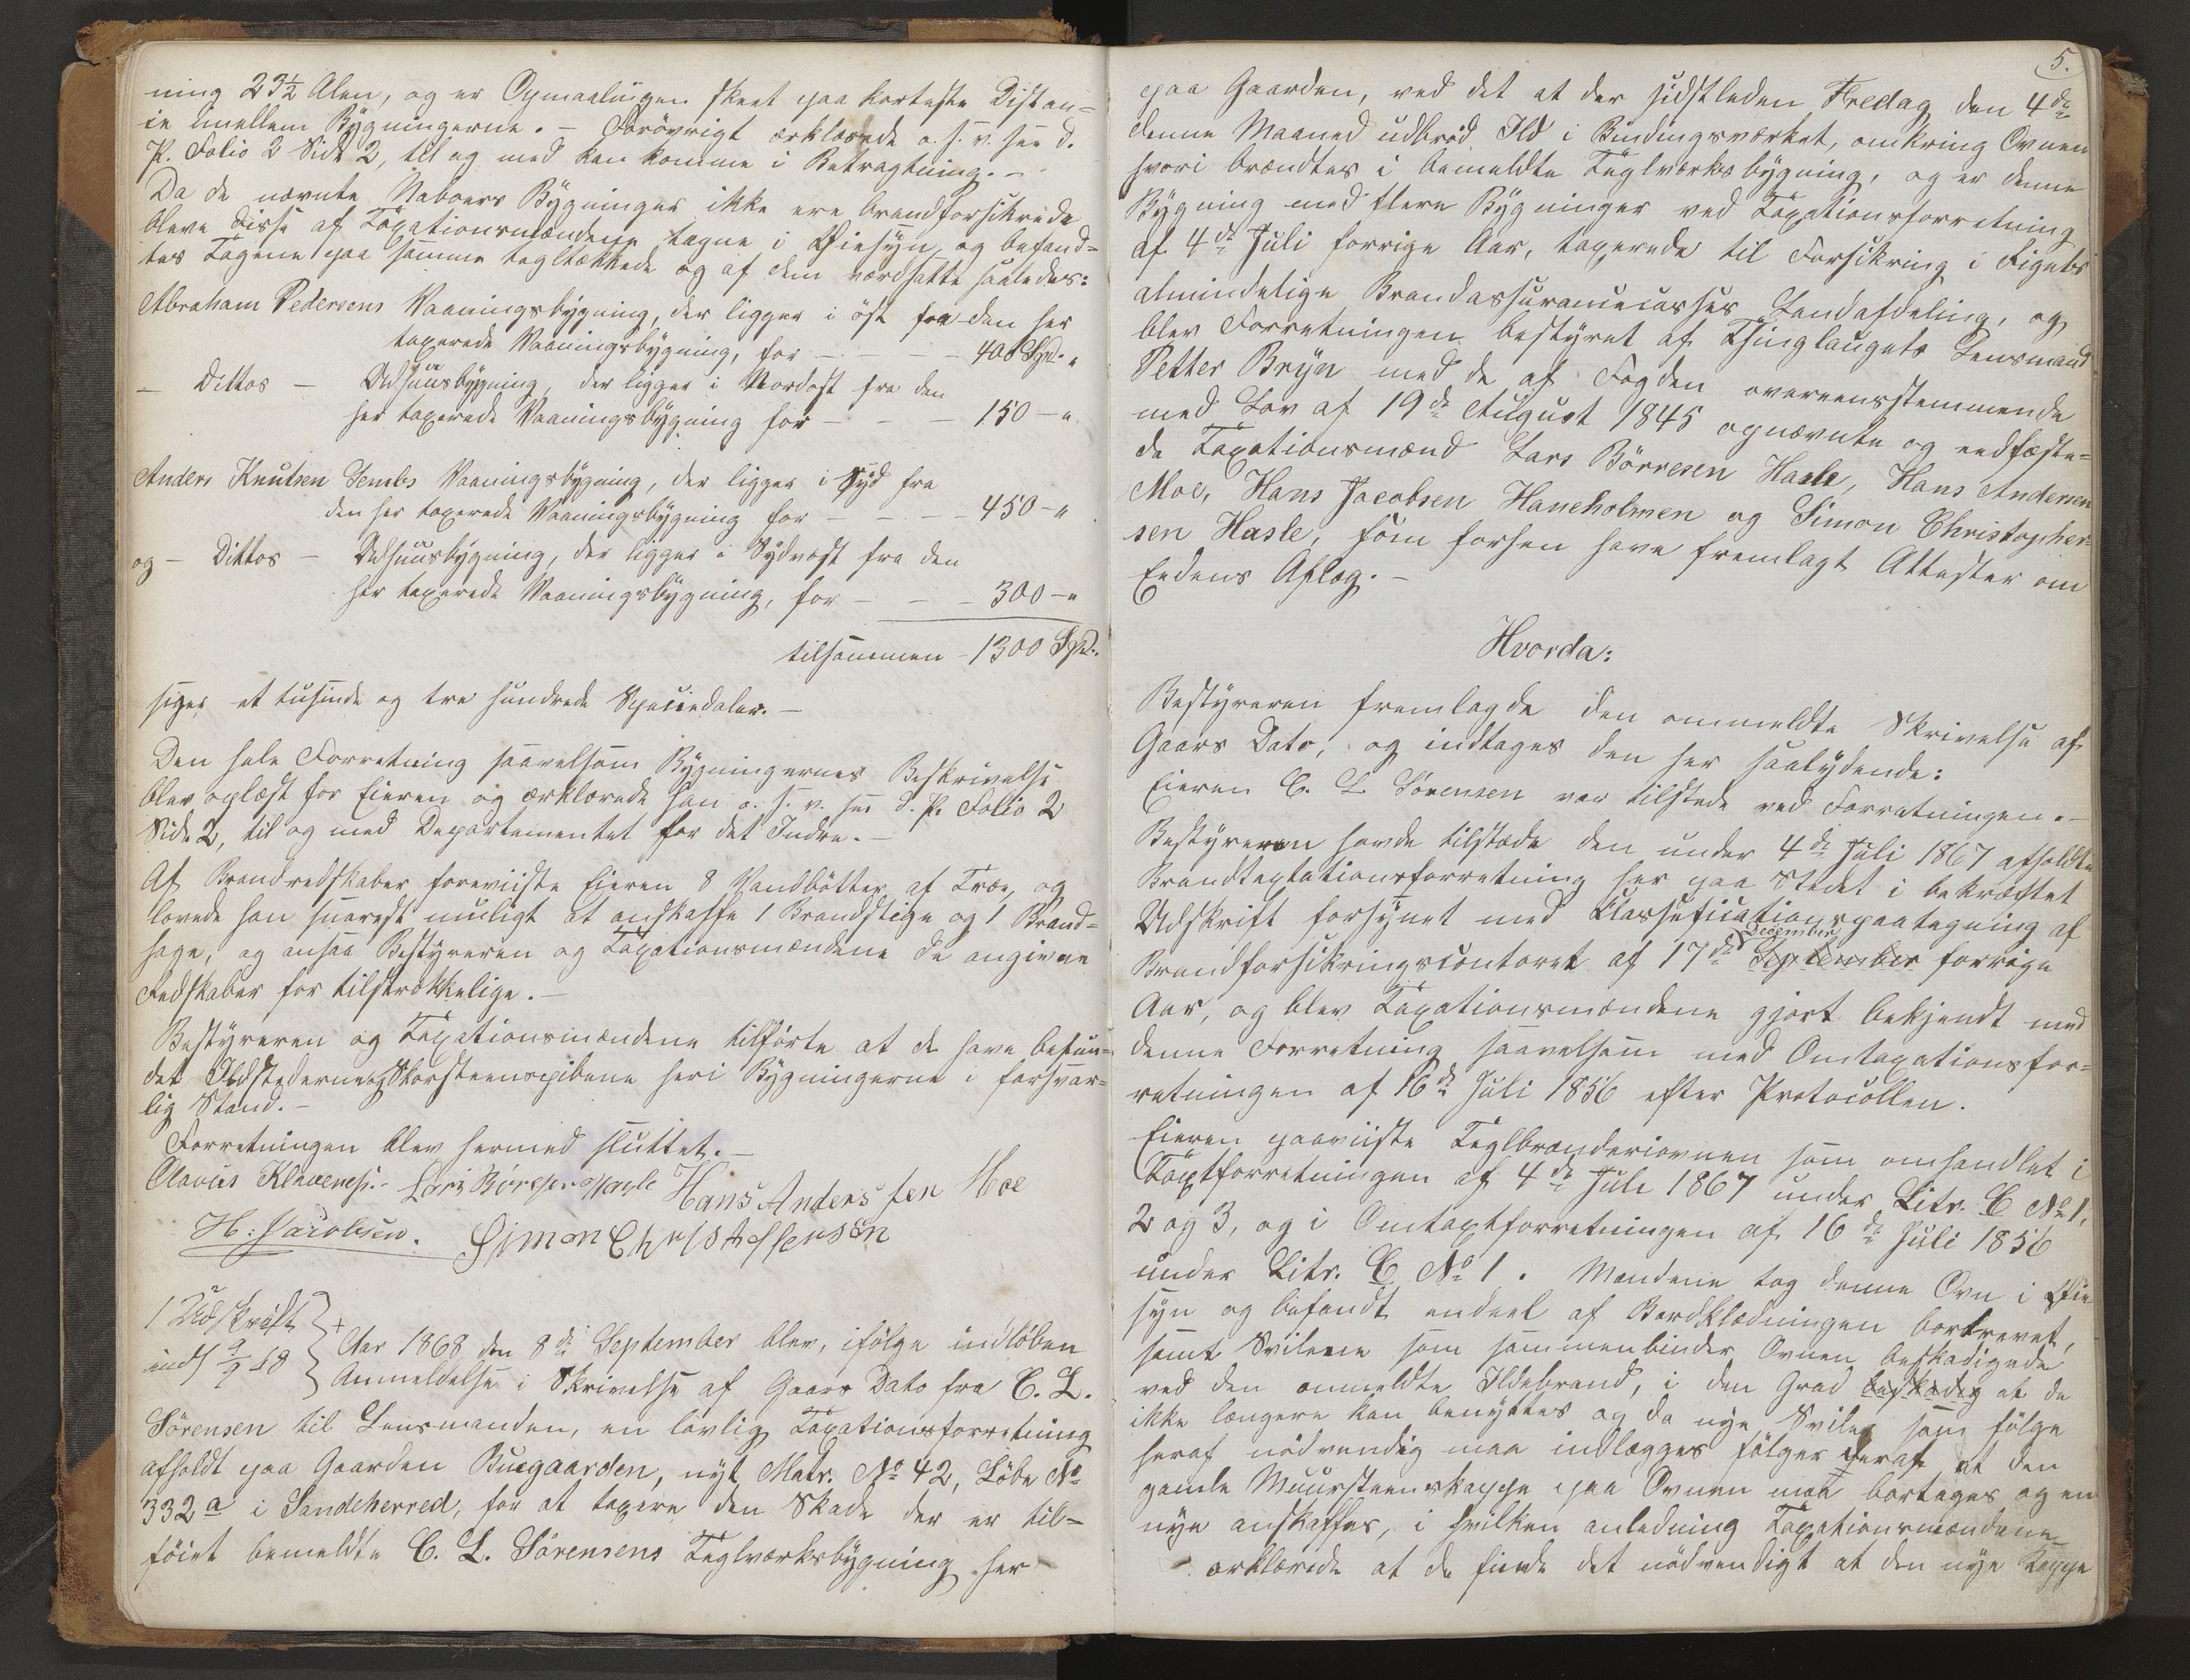 ning 23½ Alen, og er Opmaalingen skeet paa korteste Distan=
ce imellem Bygningerne. — Forövrigt erklærede o. s. v. see d.
P. Folio 2 Side 2, til og med kan komme i Betragtning. —
Da de nævnte Naboers Bygninger ikke ere brandforsikrede
bleve disse af Taxationsmændene tagne i Øiesyn og befand=
tes Tagene paa samme tegltækkede og af dem værdsatte saaledes:
Abraham Pedersens Vaaningsbygning, der ligger i öst fra den her
taxerede Vaaningsbygning, for — — — 400 Spd. "
— Dittos — Udhuusbygning, der ligger i Nordost fra den
her taxerede Vaaningsbygning for — — — 150 — "
Anders Knutsen Sembs Vaaningsbygning, der ligger i Syd fra
den her taxerede Vaaningsbygning for — — — 450 — "
og — Dittos — Udhuusbygning, der ligger i Sydvest fra den
her taxerede Vaaningsbygning, for — — — 300 — "
tilsammen — 1300 Spd.
siger et tusinde og tre hundrede Speciedaler. —
Den hele Forretning saavelsom Bygningernes Beskrivelse
blev oplæst for Eieren og erklærede han o. s. v. see d. P. Folio 2
Side 2, til og med Departementet for det Indre. —
Af Brandredskaber foreviiste Eieren 8 Vandbötter af Træ, og
lovede han snarest muligt at anskaffe 1 Brandstige og 1 Brand=
hage, og ansaa Bestyreren og Taxationsmændene de angivne
Redskaber for tilstrækkelige. —
Bestyreren og Taxationsmændene tilförte at de have befun=
det Ildstederne og Skorsteenspiberne heri Bygningerne i forsvar=
lig Stand. —
Forretningen blev hermed sluttet. —
Olavus Klavenes. Lars Börresen Hasle Hans Andersen Moe
H: Jacobsen. Simon Christoffersen
1 Udskrift
inds 9/9 68
+
Aar 1868 den 8de September blev, ifölge indlöben
Anmeldelse i Skrivelse af Gaars Dato fra C. L.
Sörensen til Lensmanden, en lovlig Taxationsforretning
afholdt paa Gaarden Buegaarden, nyt Matr. No 42, Löbe No
332a i Sandeherred, for at taxere den Skade der er til=
föiet bemeldte C. L. Sörensens Teglværksbygning her
5.
paa Gaarden, ved det at der sidstleden Fredag den 4de
denne Maaned udbröd Ild i Bindingsværket, omkring Ovnen
hvori brændtes i bemeldte Teglværksbygning, og er denne
Bygning med flere Bygninger ved Taxationsforretning
af 4de Juli forrige Aar, taxerede til Forsikring i Rigets
almindelige Brandassurancecasses Landafdeling, og
blev Forretningen bestyret af Thinglaugets Lensmand
Petter Bryn med de af Fogden overeensstemmende
med Lov af 19de August 1845 opnævnte og eedfæste=
de Taxationsmænd Lars Börresen Hasle, Hans Andersen
Moe, Hans Jacobsen Haneholmen og Simon Christopher=
sen Hasle, som forhen have fremlagt Attester om
Eedens Aflæg. —
Hvorda:
Bestyreren fremlagde den ommeldte Skrivelse af
Gaars Dato, og indtages den her saalydende:
Eieren C. L. Sörensen var tilstede ved Forretningen. —
Bestyreren havde tilstede den under 4de Juli 1867 afholdte
Brandtaxtationsforretning her paa Stedet i bekræftet
Udskrift forsynet med Classificationspaategning af
Brandforsikringscontoret af 17de September December forrige
Aar, og blev Taxationsmændene gjort bekjendt med
denne Forretning saavelsom med Omtaxationsfor=
retningen af 16de Juli 1856 efter Protocollen.
Eieren paaviiste Teglbrænderiovnen som omhandlet i
Taxtforretningen af 4de Juli 1867 under Litr. C No 1,
2 og 3, og i Omtaxtforretningen af 16de Juli 1856
under Litr. C No 1. Mændene tog denne Ovn i Öie=
syn og befandt endeel af Bordklædningen bortrevet,
samt Svilene som sammenbinder Ovnen beskadigede
ved den anmeldte Ildebrand, i den Grad beskadig at de
ikke længere kan benyttes og da nye Sviler som fölge
heraf nödvendig maa indlægges fölger deraf at den
gamle Muursteenskappe paa Ovnen maa bortages og en
nye anskaffes, i hvilken anledning Taxationsmændene
erklærede at de finde det nödvendigt at den nye Kappe